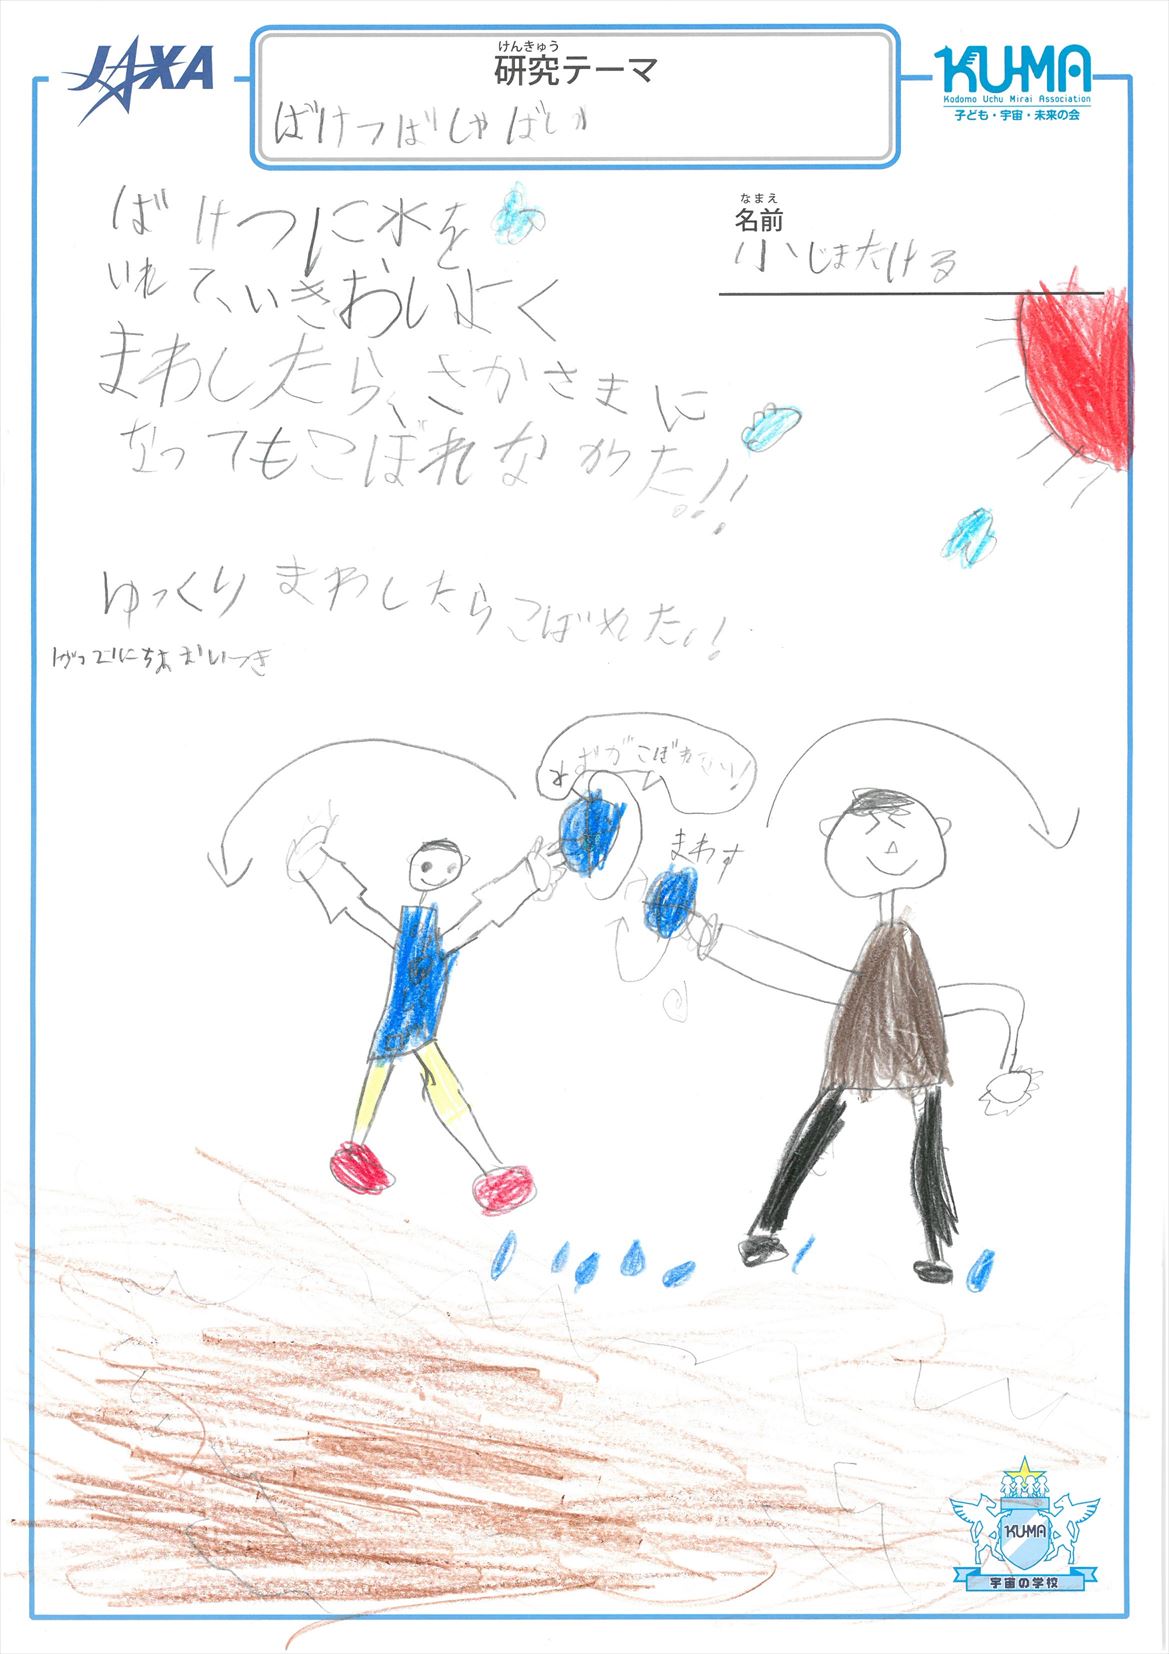 JAXA
けんきゅう
研究テーマ
KU-MA
Kodomo Uchu Mirai Association
子ども・宇宙・未来の会
ばけつばしゃばしゃ
なまえ
名前
小じまたける
ばけつに水を
いれて、いきおいよく
まわしたら、さかさまに
なってもこぼれなかった!!
ゆっくりまわしたらこぼれた!!
みずがこぼれない!
まわす
KU-MA
宇宙の学校